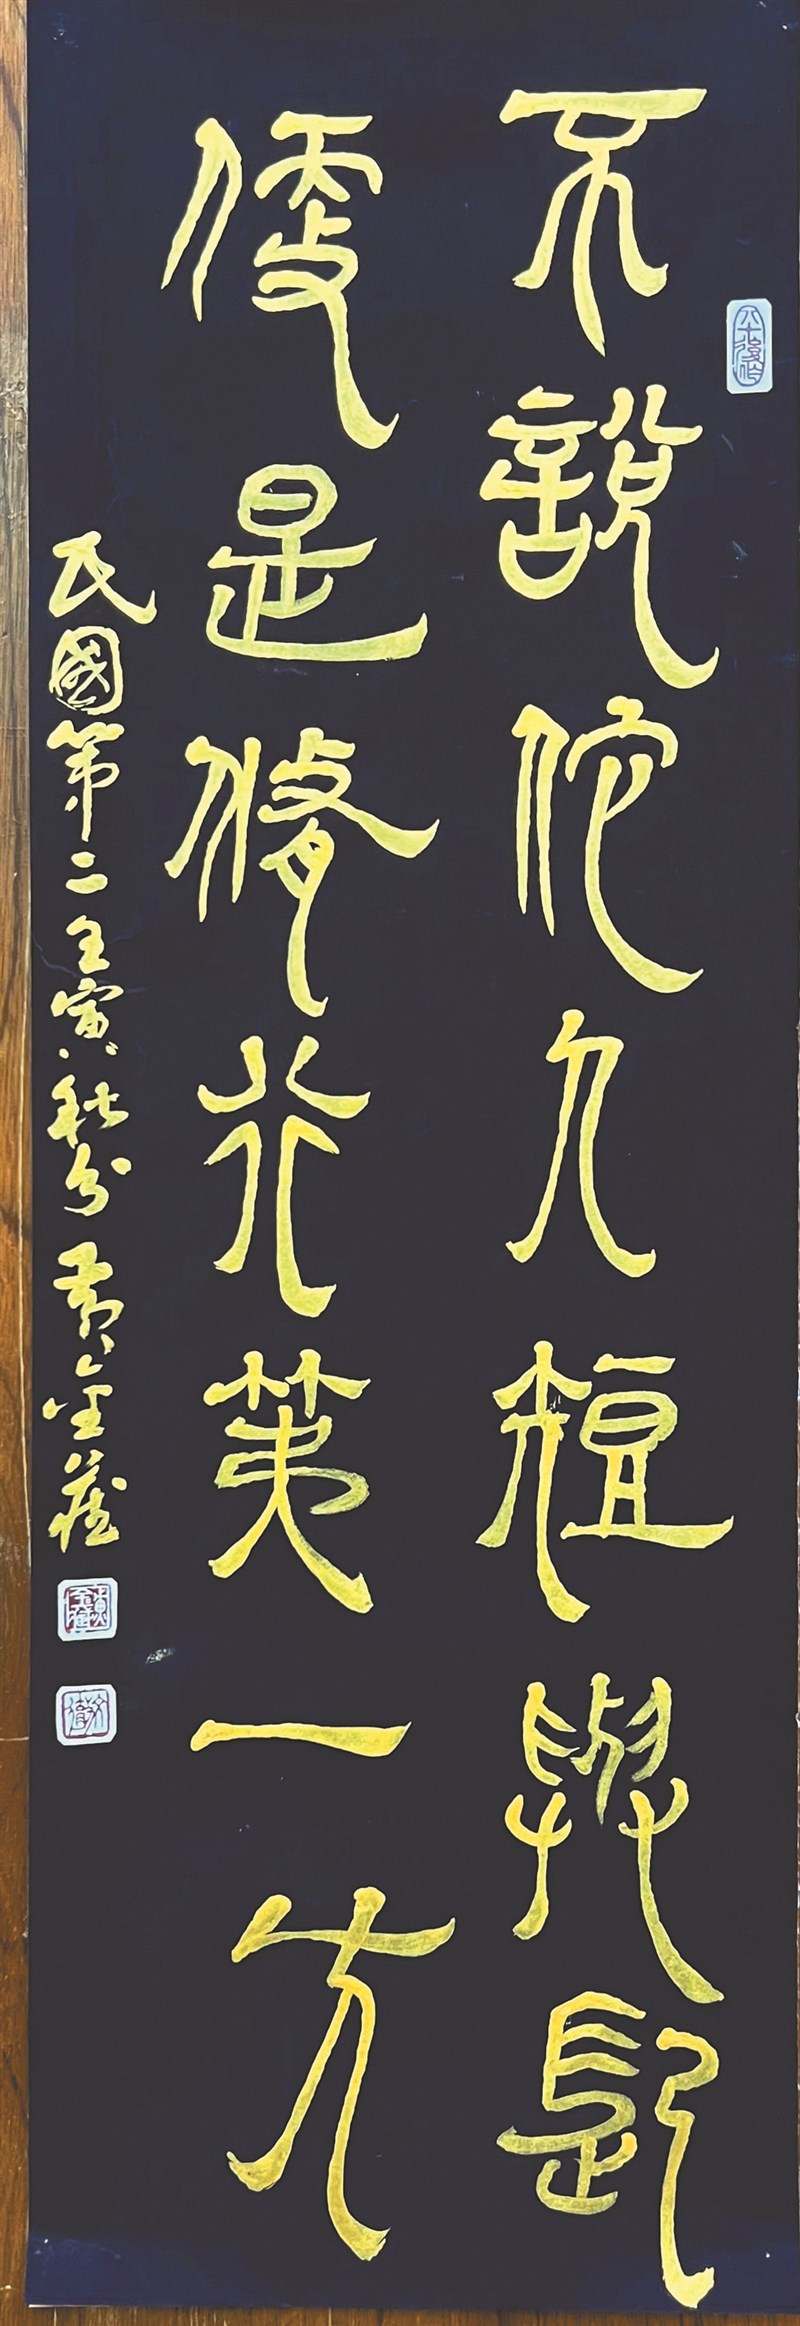 八十後作
不說佗人短與長
便是修行第一先
民國第二壬寅秋分 黃金